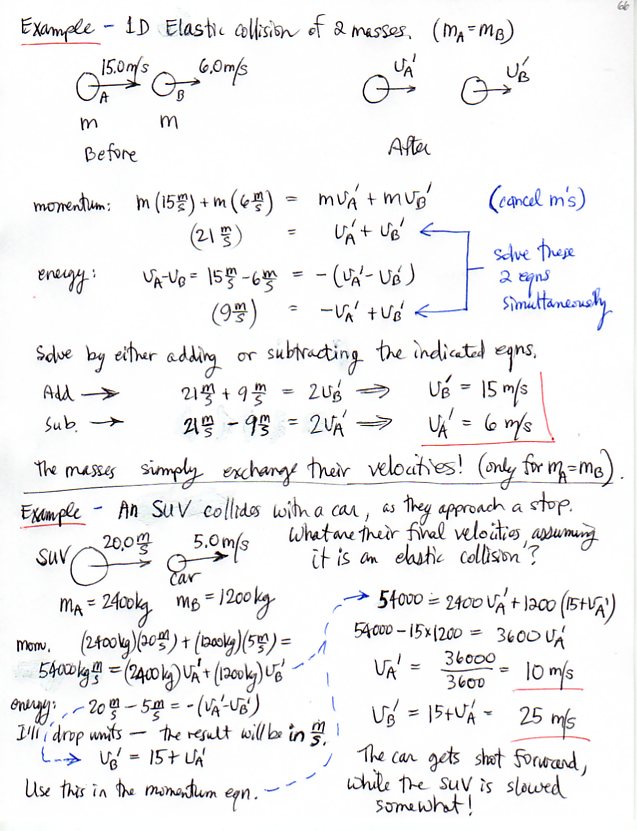 66
Example - 1D Elastic collision of 2 masses. (mA = mB)
15.0 m/s 6.0 m/s vA′ vB′
A B
m m
Before After
momentum: m(15 m/s) + m(6 m/s) = mvA′ + mvB′ (cancel m's)
(21 m/s) = vA′ + vB′
energy: vA - vB = 15 m/s - 6 m/s = -(vA′ - vB′)
(9 m/s) = -vA′ + vB′
solve these
2 eqns
simultaneously
Solve by either adding or subtracting the indicated eqns.
Add → 21 m/s + 9 m/s = 2vB′ ⇒ vB′ = 15 m/s
Sub. → 21 m/s - 9 m/s = 2vA′ ⇒ vA′ = 6 m/s
The masses simmply exchange their velocities! (only for mA = mB).
Example - An SUV collides with a car, as they approach a stop.
What are their final velocities, assuming
it is an elastic collision?
SUV 20.0 m/s 5.0 m/s
car
mA = 2400 kg mB = 1200 kg
mom. (2400kg)(20 m/s) + (1200kg)(5 m/s) =
54000 kg m/s = (2400kg)vA′ + (1200kg)vB′
energy: 20 m/s - 5 m/s = -(vA′ - vB′)
I'll drop units - the result will be in m/s.
vB′ = 15 + vA′
Use this in the momentum eqn.
54000 = 2400 vA′ + 1200 (15 + vA′)
54000 - 15×1200 = 3600 vA′
vA′ = 36000/3600 = 10 m/s
vB′ = 15 + vA′ = 25 m/s
The car gets shot forward,
while the SUV is slowed
somewhat!